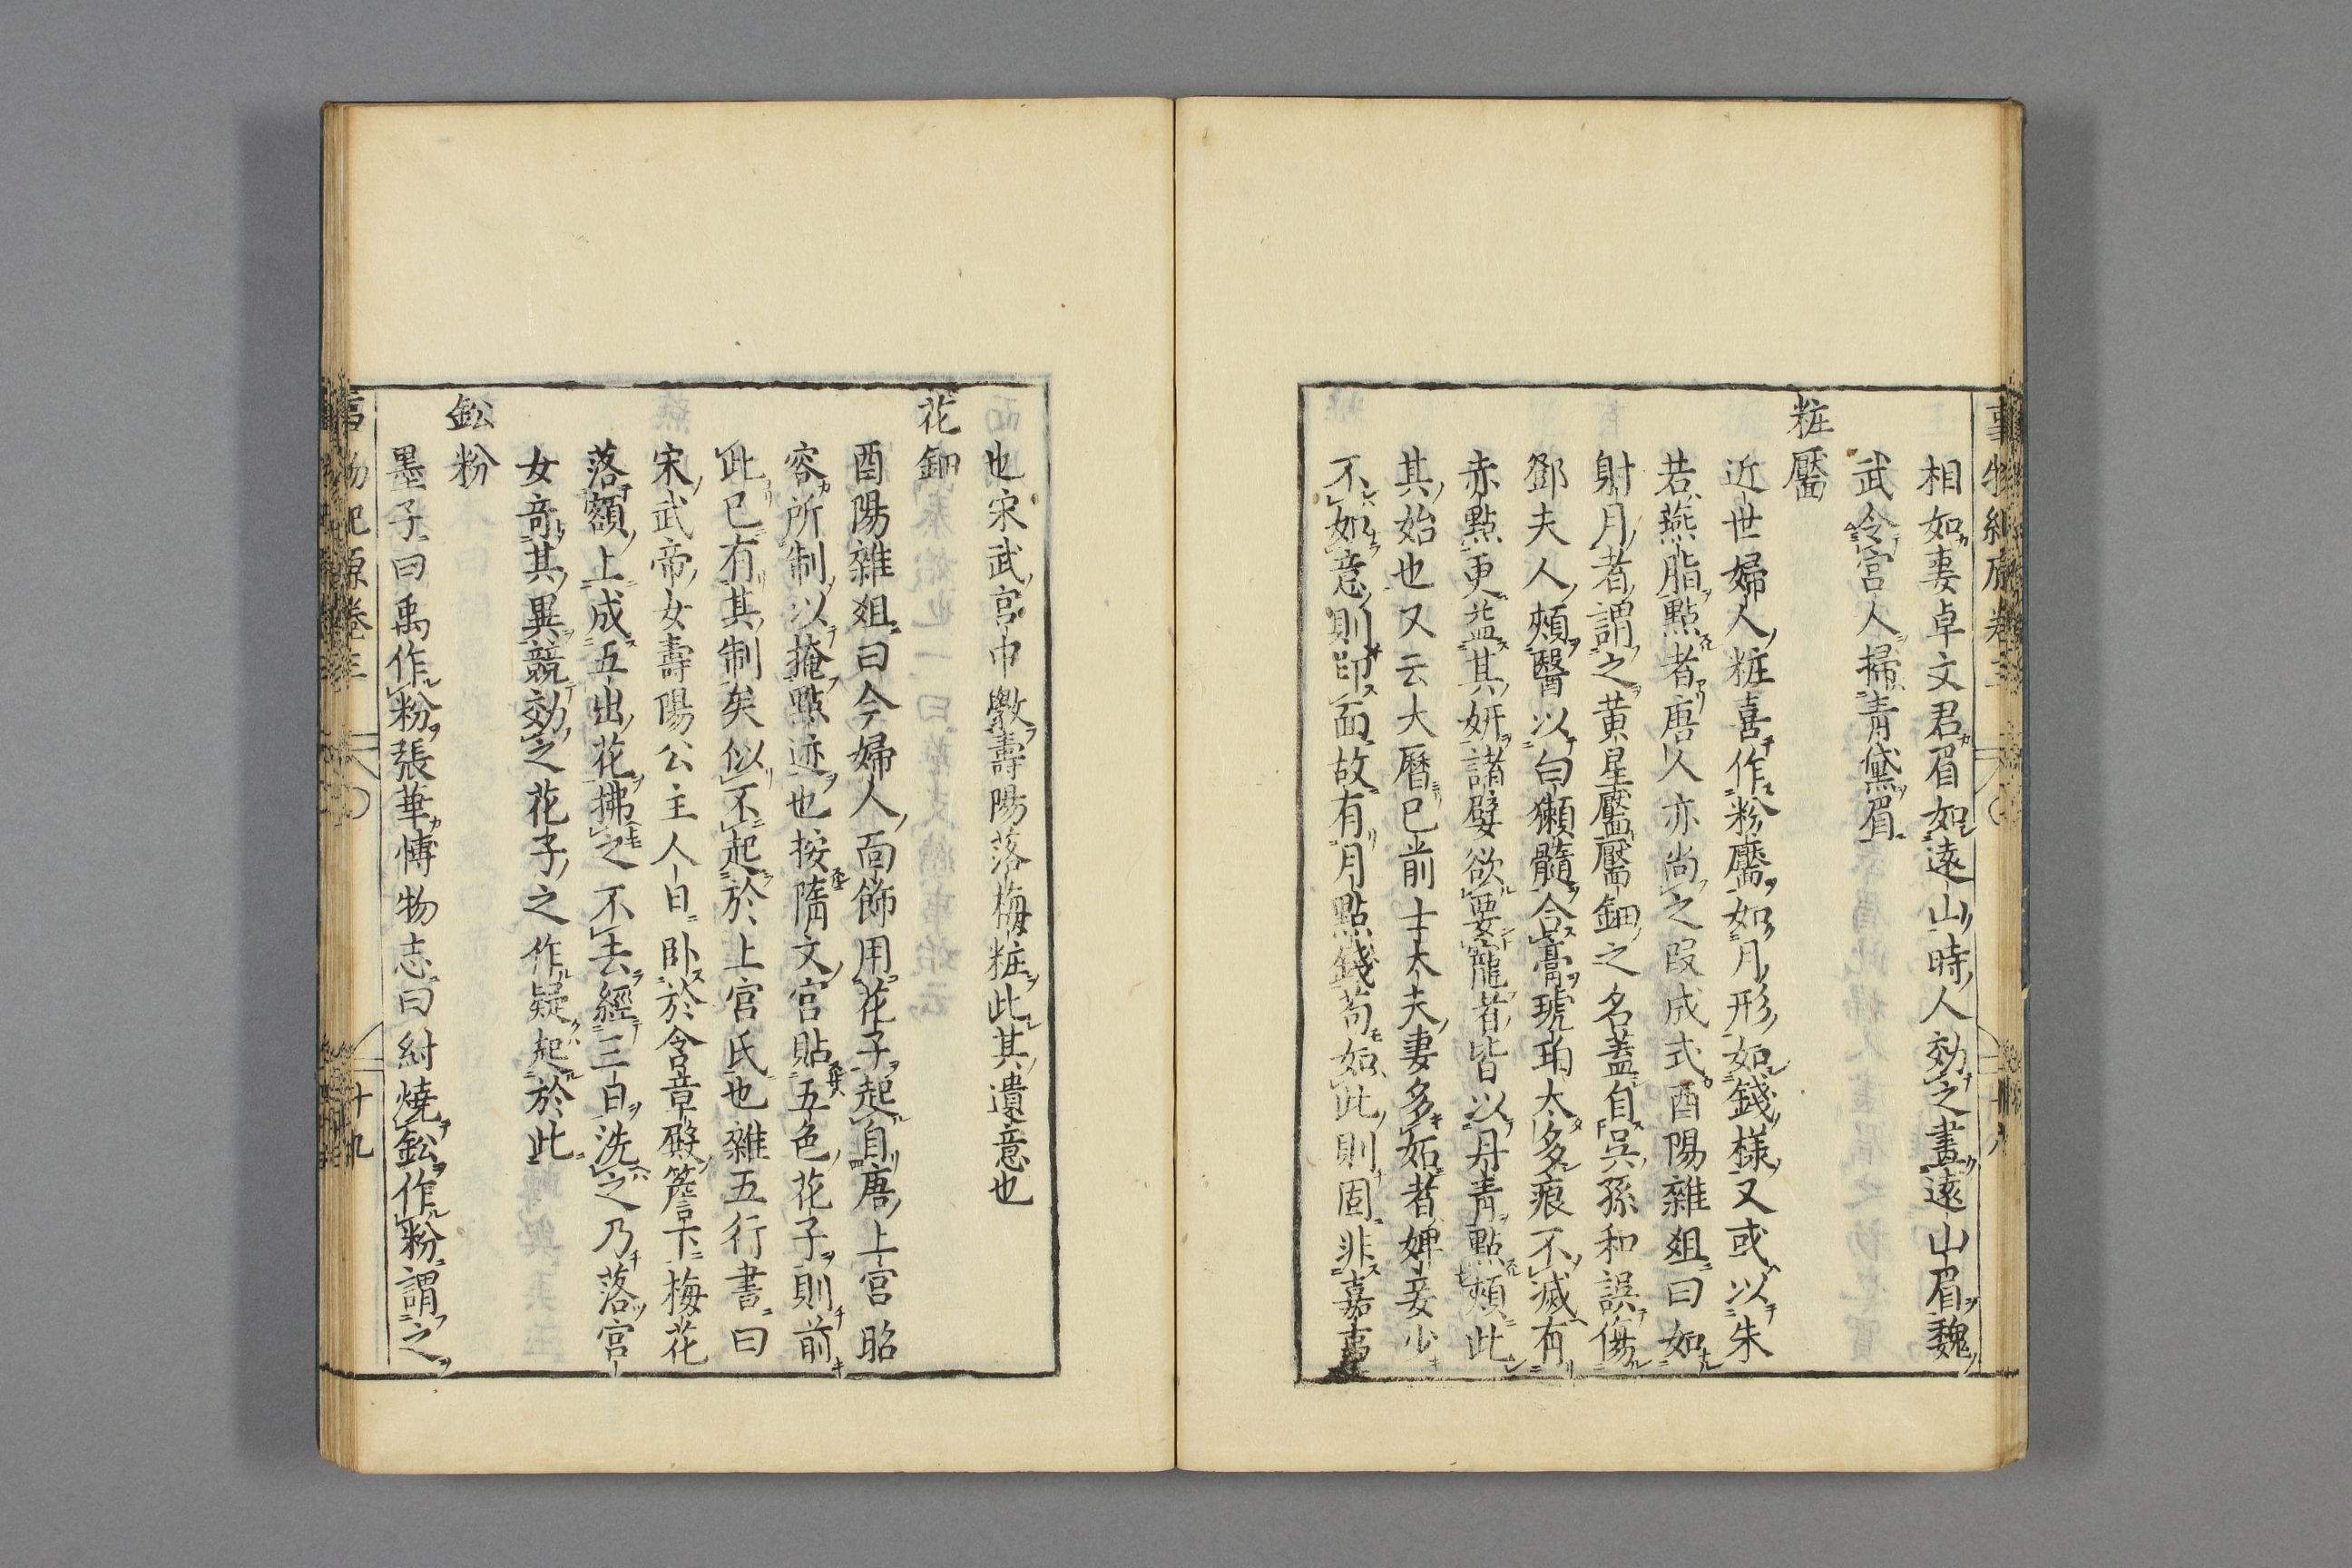 相如妻卓文君眉如遠山時人効之畫遠山眉魏
武令宮人掃青黛眉
粧靨
近世婦人粧喜作粉靨如月形如錢樣又或以朱
若燕脂點者唐人亦尚之段成式酉陽雜俎曰如
射月者謂之黃星靨靨鈿之名蓋自吳孫和誤傷
鄧夫人頰醫以白獺髓合膏琥珀太多痕不滅有
赤點更益其妍諸嬖欲要寵者皆以丹青點頰此
其始也又云大曆已前士大夫妻多妬者婢妾少
不如意則印面故有月點錢苟如此則固非嘉事
也宋武宮中斅壽陽落梅粧此其遺意也
花鈿
酉陽雜俎曰今婦人面飾用花子起自唐上官昭
容所制以掩點迹也按隋文宮貼五色花子則前
此已有其制矣似不起於上官氏也雜五行書曰
宋武帝女壽陽公主人日卧於含章殿簷下梅花
落額上成五出花拂之不去經三日洗之乃落宮
女竒其異競効之花子之作疑起於此
鈆粉
墨子曰禹作粉張華博物志曰紂燒鈆作粉謂之
事物紀原卷三 十九